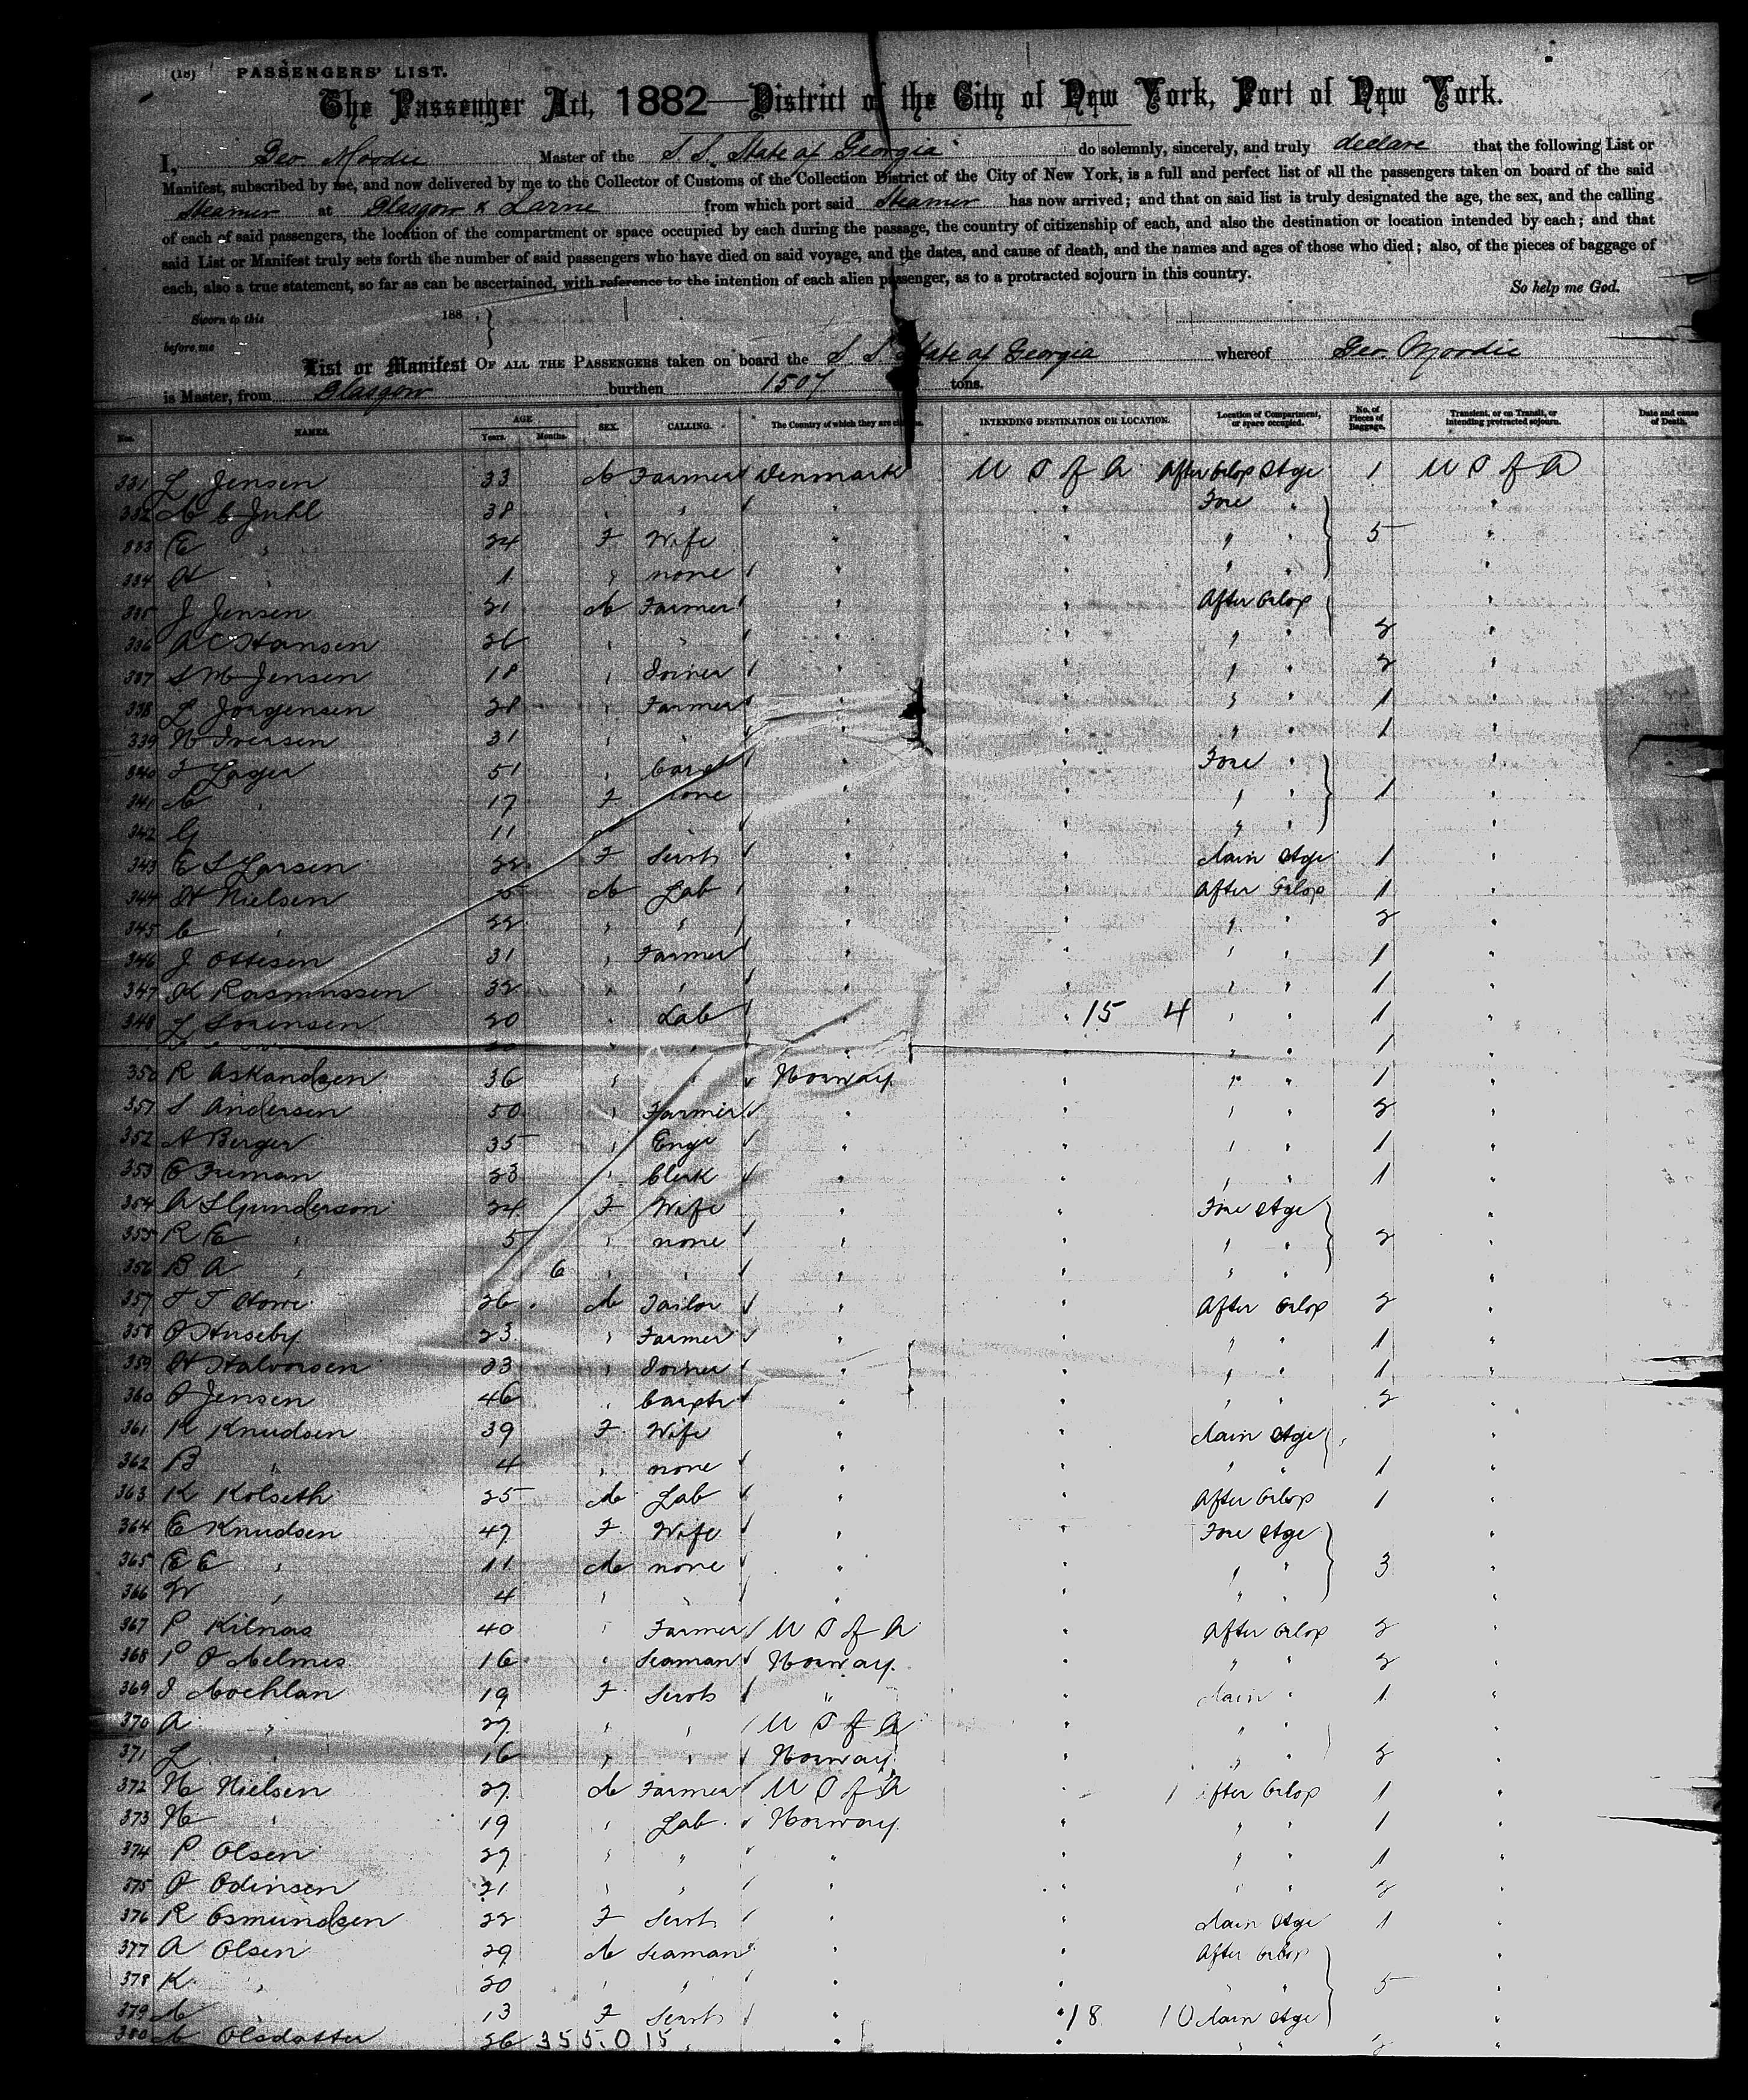 (18) PASSENGERS' LIST.
The Passenger Act, 1882—District of the City of New York, Port of New York.
I, Geo Moodie Master of the S.S. State of Georgia do solemnly, sincerely, and truly declare that the following List or
Manifest, subscribed by me, and now delivered by me to the Collector of Customs of the Collection District of the City of New York, is a full and perfect list of all the passengers taken on board of the said
Steamer at Glasgow & Larne from which port said Steamer has now arrived; and that on said list is truly designated the age, the sex, and the calling
of each of said passengers, the location of the compartment or space occupied by each during the passage, the country of citizenship of each, and also the destination or location intended by each; and that
said List or Manifest truly sets forth the number of said passengers who have died on said voyage, and the dates, and cause of death, and the names and ages of those who died; also, of the pieces of baggage of
each, also a true statement, so far as can be ascertained, with reference to the intention of each alien passenger, as to a protracted sojourn in this country.
So help me God.
Sworn to this 188
before me
List or Manifest OF ALL THE PASSENGERS taken on board the S.S. State of Georgia whereof Geo. Moodie
is Master, from Glasgow burthen 1507 tons.
Nos. NAMES. AGE Years. Months. SEX. CALLING. The Country of which they are citizens. INTENDING DESTINATION OR LOCATION. Location of Compartment, or space occupied. No. of Pieces of Baggage. Transient, or on Transit, or intending protracted sojourn. Date and cause of Death.
331 L Jensen 33 M Farmer Denmark U S of A After Orlop Stge 1 U S of A
332 M C Juhl 38 " " " " Fore " "
333 E " 24 F Wife " " " " 5 "
334 H " 1 " none " " " " "
335 J Jensen 21 M Farmer " " After Orlop "
336 A C Hansen 26 " " " " " " 2 "
337 S M Jensen 18 " Joiner " " " " 2 "
338 L Jorgensen 28 " Farmer " " " " 1 "
339 N Iversen 31 " " " " " " 1 "
340 F Lager 51 " Carpt " " Fore " "
341 M " 17 F none " " " " 1 "
342 G 11 " " " " " "
343 E S Larsen 22 F Servt " " Main Stge 1 "
344 H Nielsen M Lab " " After Orlop 1 "
345 C " 22 " " " " " " 2 "
346 J Ottesen 31 " Farmer " " " " 1 "
347 K Rasmussen 32 " " " " " " 1 "
348 L Sorensen 20 " Lab " " 15 4 " " 1 "
" " " " " " 1 "
350 R Askandsen 36 " " Norway " " " 1 "
351 S Andersen 50 " Farmer " " " " 2 "
352 A Berger 35 " Engr " " " " 1 "
353 E Freman 23 " Clerk " " " " 1 "
354 A S Gunderson 24 F Wife " " Fore Stge "
355 R E " 5 " none " " " " 2 "
356 B A " 6 " " " " " " "
357 T T Howe 26 M Tailor " " After Orlop 2 "
358 O Huseby 23 " Farmer " " " " 1 "
359 H Halvorsen 23 " Joiner " " " " 1 "
360 O Jensen 46 " Carptr " " " " 2 "
361 K Knudsen 39 F Wife " " Main Stge "
362 B " 4 " none " " " " 1 "
363 K Kolseth 25 M Lab " " After Orlop 1 "
364 E Knudsen 47 F Wife " " Fore Stge "
365 E E " 11 M none " " " " 3 "
366 W " 4 " " " " " " "
367 P Kilnas 40 " Farmer U S of A " After Orlop 2 "
368 P O Melmes 16 " Seaman Norway " " " 2 "
369 I Mochlan 19 F Servt " " Main " 1 "
370 A " 27 " " U S of A " " " "
371 L " 16 " " Norway " " " 2 "
372 N Nielsen 27 M Farmer U S of A " 1 After Orlop 1 "
373 N " 19 " Lab Norway " " " 1 "
374 P Olsen 27 " " " " " " 1 "
375 O Odinsen 21 " " " " " " 2 "
376 R Osmundsen 22 F Servt " " Main Stge 1 "
377 A Olsen 29 M Seaman " " After Orlop "
378 K " 20 " " " " " " 5 "
379 M " 13 F Servt " " 18 10 Main Stge "
380 M Olsdatter 26 355.015 " " " " " 2 "